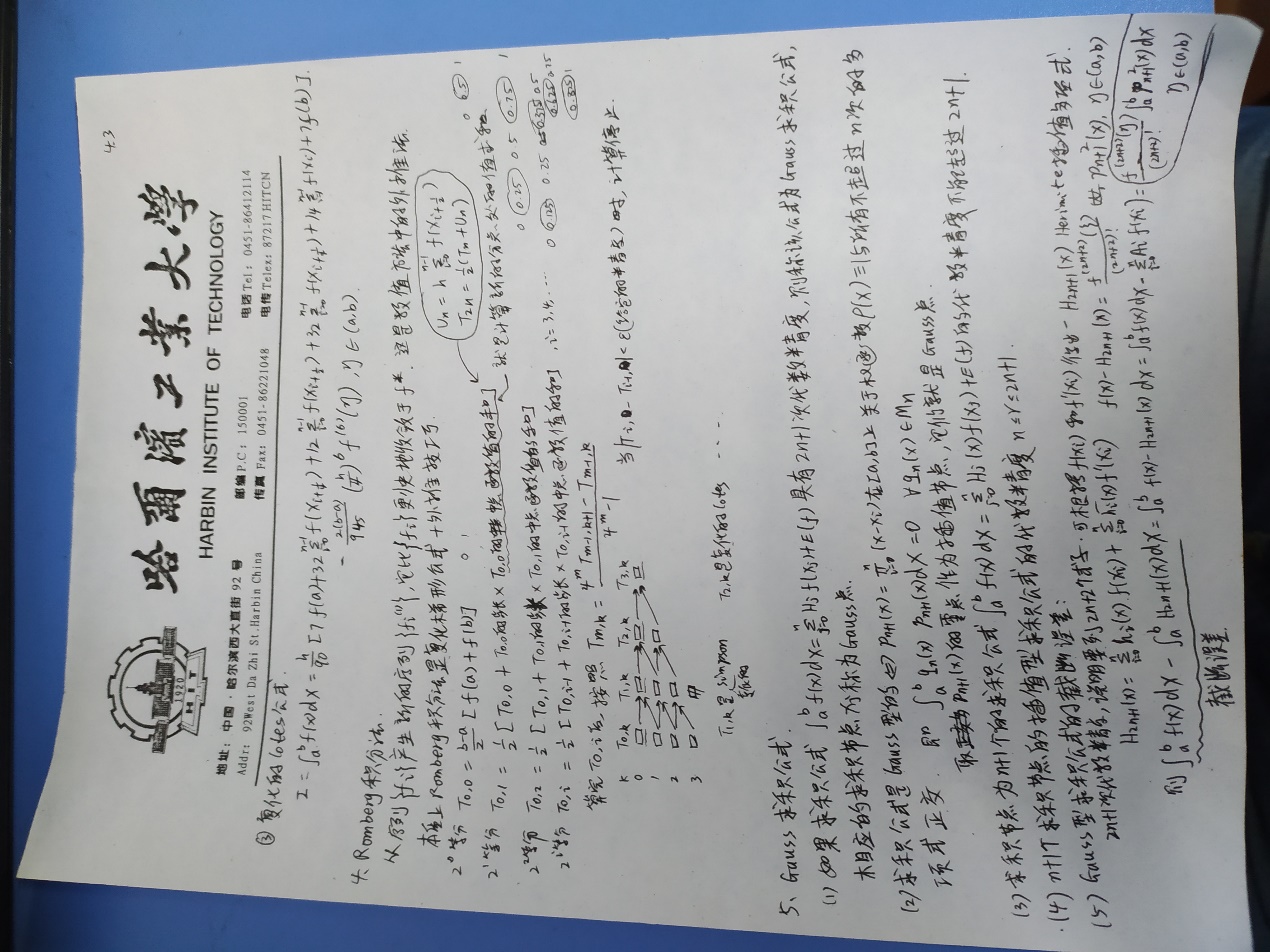 4.3
1920
HIT
哈爾濱工業大學
HARBIN INSTITUTE OF TECHNOLOGY
地址：中国·哈尔滨西大直街 92 号 邮编 P.C：150001 电话 Tel：0451-86412114
Addr：92West Da Zhi St.Harbin China 传真 Fax：0451-86221048 电传 Telex：87217 HITCN
③ 复化的Cotes公式.
I = ∫_a^b f(x)dx = h/90 [7f(a)+32 Σ_{i=0}^{n-1} f(x_{i+1/4}) +12 Σ_{i=0}^{n-1} f(x_{i+1/2}) + 32 Σ_{i=0}^{n-1} f(x_{i+3/4}) +14 Σ_{i=1}^{n-1} f(xi)+7f(b)].
- 2(b-a)/945 (h/4)^6 f^{(6)}(η), η∈(a,b).
4、Romberg积分法.
从序列{fi}产生新的序列{fi^{(1)}}，它比{fi}更快地收敛于f*. 这是数值方法中的外推法.
本质上Romberg积分法是复化梯形公式+外推技巧.
Un = h Σ_{i=0}^{n-1} f(x_{i+1/2})
T2n = 1/2(Tn+Un)
2^0等分 T0,0 = (b-a)/2 [f(a)+f(b)] 0 1
2^1等分 T0,1 = 1/2 [T0,0 + T0,0的步长 × T0,0的中点函数值的和] 就是计算新的分点处的值求和 0 0.5 1
2^2等分 T0,2 = 1/2 [T0,1 + T0,1的步长 × T0,1的中点函数值的和] 0 0.25 0.5 0.75 1
2^i等分 T0,i = 1/2 [T0,i-1 + T0,i-1的步长 × T0,i-1的中点函数值的和], i=3,4,… 0 0.125 0.25 0.375 0.5
0.625 0.75
1
算完T0,i后，按照 Tm,k = (4^m Tm-1,k+1 - Tm-1,k)/(4^m-1)
当|Ti,0 - Ti-1,0| < ε(给定的精度)时，计算停止.
k T0,k T1,k T2,k T3,k
0
1
2
3
T1,k是Simpson T2,k是复化的Cotes ....
复化的
5、Gauss求积公式.
(1) 如果求积公式 ∫_a^b f(x)dx = Σ_{j=0}^n Hj f(xj)+E(f) 具有2n+1次代数精度，则称该公式为Gauss求积公式，
相应的求积节点xj称为Gauss点.
(2) 求积公式是Gauss型的 ⇔ Pn+1(x) = Π_{i=0}^n (x-xi)在[a,b]上关于权函数ρ(x)≡1与所有不超过n次的多
项式正交. 即 ∫_a^b qn(x) Pn+1(x)dx = 0 ∀qn(x)∈Mn
取Pn+1(x)的零点作为插值节点，它们就是Gauss点.
(3) 求积节点为n+1个的求积公式 ∫_a^b f(x)dx = Σ_{j=0}^n Hj(x)f(xj)+E(f) 的代数精度不能超过2n+1.
(4) n+1个求积节点的插值型求积公式的代数精度 n≤r≤2n+1.
(5) Gauss型求积公式的截断误差：
2n+1次代数精度，说明要列2n+2个式子. 可根据f(xi)和f'(xi)作出一H2n+1(x) Herimite插值多项式.
H2n+1(x) = Σ_{i=0}^n hi(x)f(xi) + Σ_{i=0}^n h̄i(x)f'(xi) f(x)-H2n+1(x) = f^{(2n+2)}(ξ)/(2n+2)! P²n+1(x), η∈(a,b)
则 ∫_a^b f(x)dx - ∫_a^b H2n+1(x)dx = ∫_a^b f(x)-H2n+1(x)dx = ∫_a^b f(x)dx - Σ_{i=0}^n Ai f(xi) = f^{(2n+2)}(η)/(2n+2)! ∫_a^b P²n+1(x)dx
η∈(a,b)
截断误差.